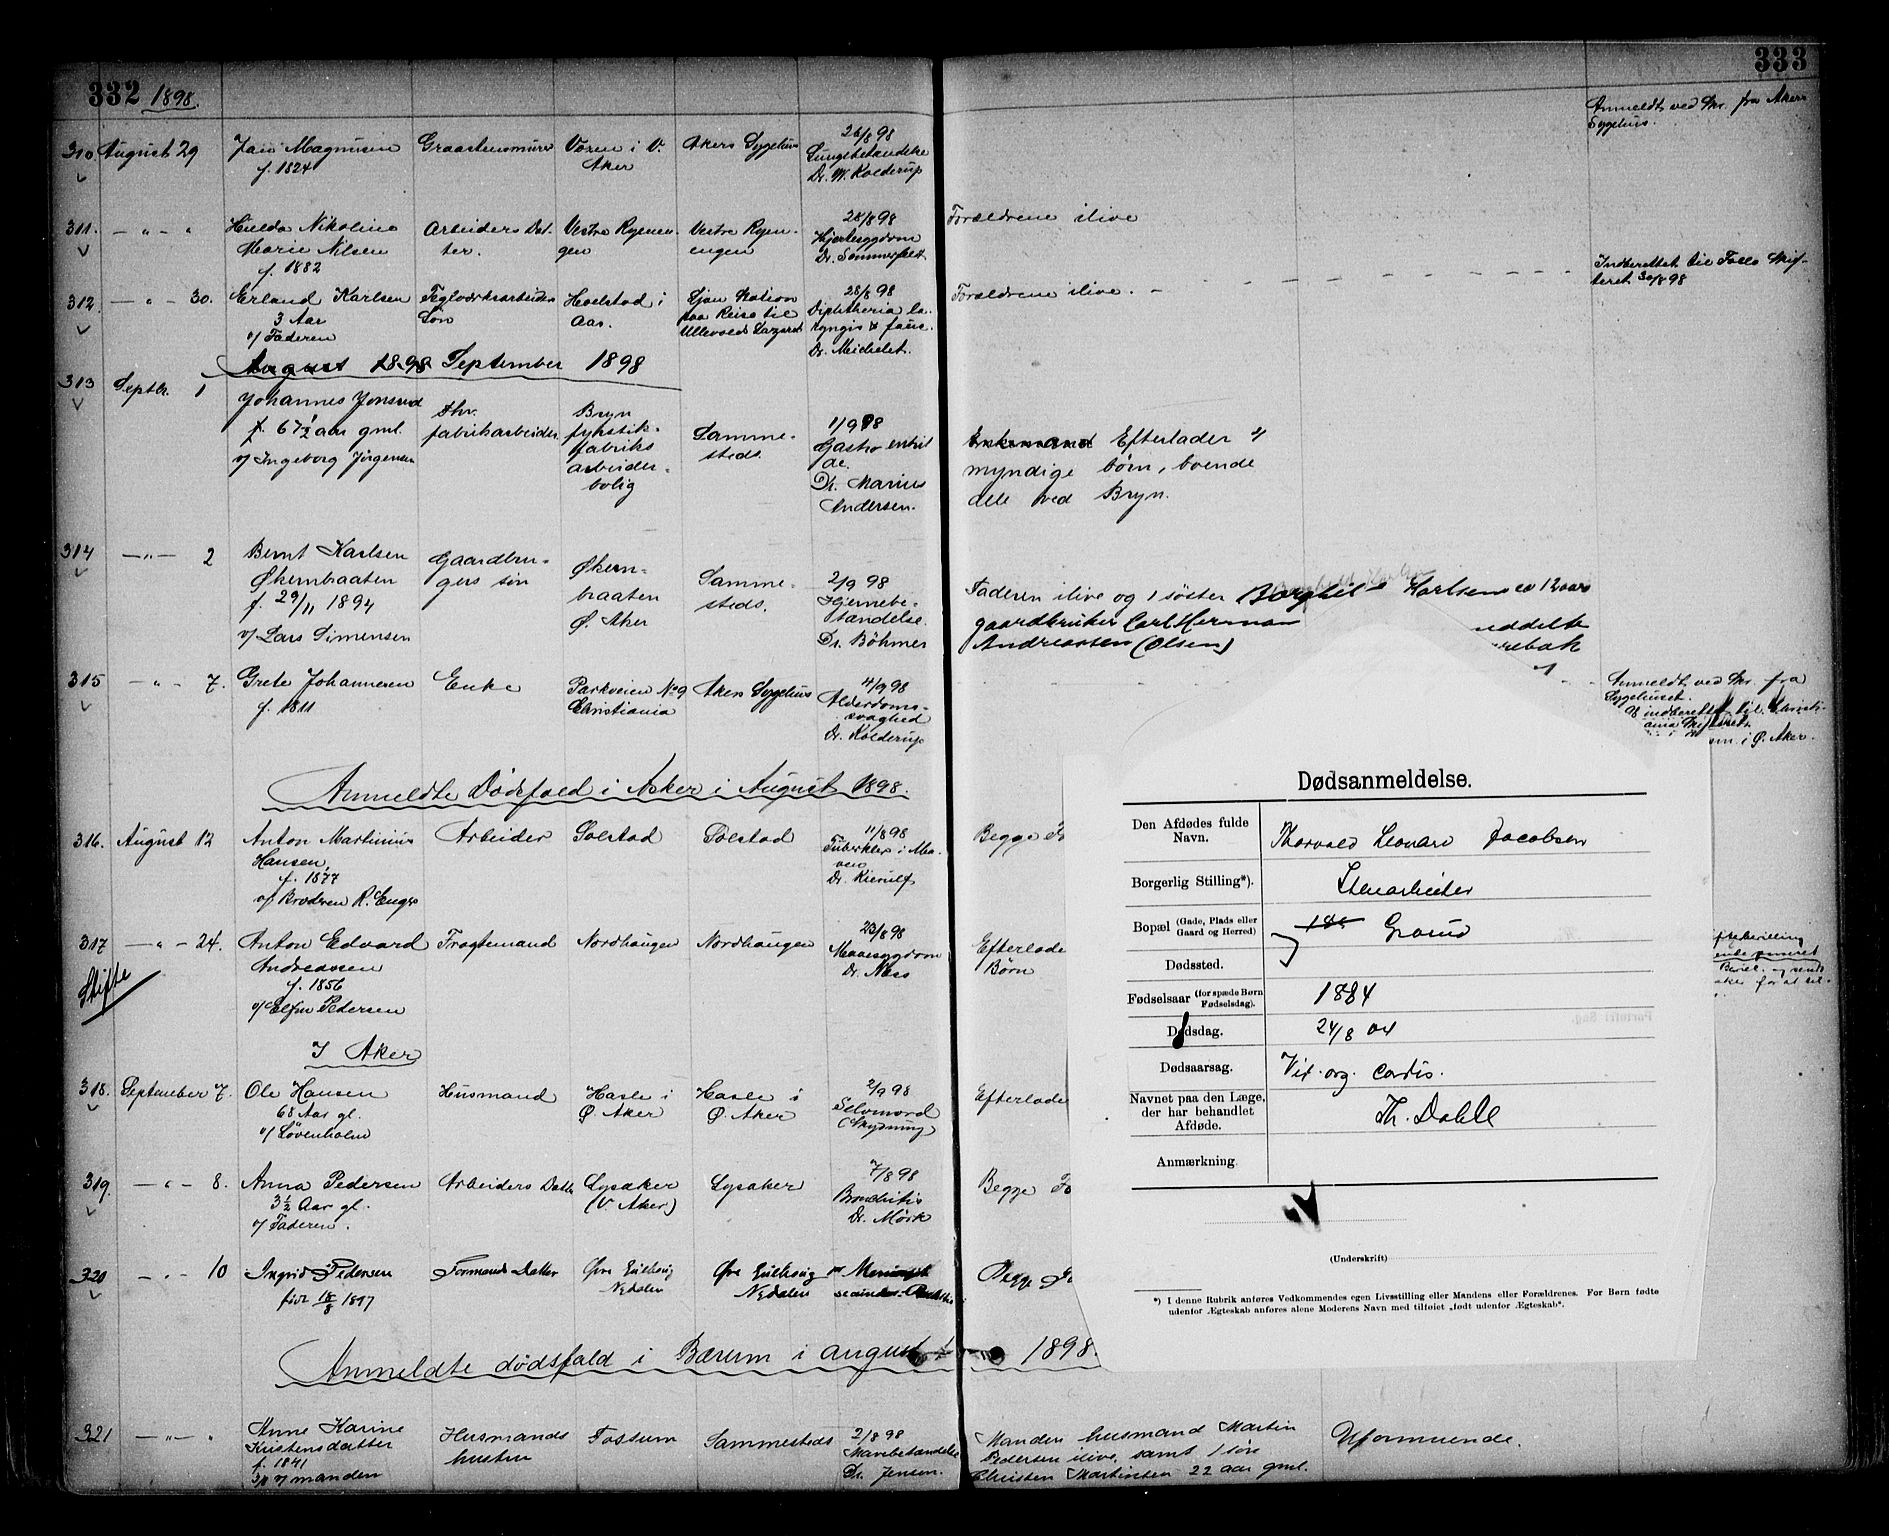 332 1898.
333
Anmeldt ved Skr. fra Akers
Sygehus.
310. August 29
Magnusen
f. 1824
Graastensmurer
Voxen i V.
Aker
Akers Sygehus
26/8 98
Lungebetændelse
Dr. W. Kolderup
311. — " — "
Hulda Nikoline
Marie Nilsen
f. 1882
Arbeiders Dat-
ter.
Vestre Ryenen-
gen
Vestre Ryen-
engen
28/8 98
Hjertesygdom
Dr. Sommerfeldt
Forældrene ilive
312. — " — 30.
Erland Karlsen
3 Aar
v/ Faderen
Teglværksarbeiders
Søn
i
Aas.
Ljan Station
paa Reise til
Ullevaals Lazaret
28/8 98
Diphtheria la-
ryngis & fauc.
Dr. Michelet.
Forældrene ilive.
Indberettet til Follo Skif-
teret 30/8 98
August 1898 September 1898
313 Septbr. 1
Johannes
f. 67½ aar gml.
v/ Ingeborg Jørgensen
fabrikarbeider
Bryn
fyrstik-
fabriks
arbeider-
bolig
Samme-
steds.
1/9 98
Gastro enterit
ac.
Dr. Marius
Andersen.
Enkemand Efterlader
myndige børn, boende
dels ved Bryn.
314 — " — 2
Bernt Karlsen
Økernbraaten
f. 29/11 1894
v/ Lars Simensen
Gaardbru-
gers søn
Økern-
braaten
Ø. Aker
Samme-
steds.
2/9 98
Hjernebe-
tændelse.
Dr. Bøhmer
Faderen ilive og 1 søster Borghild Karlsen 12 aar
gaardbruker Carl Herman
Andreassen (Olsen)
315 — " — 7.
Grete Johannesen
f. 1811
Enke
Parkveien No 9
Christiania
Akers Sygehus
4/9 98
Alderdoms-
svaghed
Dr. Kolderup
Anmeldt ved Skr. fra
Sygehuset.
Og indberettet til Christi-
ania Skifteret.
i Ø. Aker.
Anmeldte Dødsfald i Asker i August 1898.
316. August 12
Anton Martinius
Hansen
f. 1877
v/ Broderen R. Enger
Arbeider
Solstad
Solstad
11/8 98
Tuberkler i Ma-
ven
Dr. Kierulf
Begge
317 — " — 24.
Stifte
Anton Edvard
Andreassen
f. 1856
v/ Pedersen
Nordhaugen
Nordhaugen
23/8 98
Mavesygdom
Dr. Næss
Efterlade
Børn
I Aker
318. September 7.
Ole Hansen
68 Aar gl.
v/ Løvenholm
Husmand
Hasle i
Ø. Aker
Hasle i
Ø. Aker
2/9 98
Selvmord
(Skydning)
Efterlade
319. — " — 8.
Anna Pedersen
3½ Aar gl.
v/ Faderen.
Arbeiders Datter
Lysaker
(V. Aker)
Lysaker
7/8 98
Bronchitis
Dr. Mørk
Begge
320 — " — 10
Ingrid Pedersen
født 18/8 1897
Formands Datter
Nydalen
Nydalen
Begge
Anmeldte dødsfald i Bærum i august 1898.
321 — " — "
Anne Karine
Kristensdatter
f. 1841
v/ manden
Husmands
hustru
Fossum
Sammesteds
2/8 98
Mavebetændelse
Dr. Jensen.
Manden husmand Martin
Pedersen ilive, samt 1 søn
Christen Martinsen 22 aar gml.
Uformuende.
Dødsanmeldelse.
Den Afdødes fulde
Navn.
Thorvald Leonard Jacobsen
Borgerlig Stilling*).
Stenarbeider
Bopæl (Gade, Plads eller
Gaard og Herred)
Grorud
Dødssted.
Fødselsaar (for spæde Børn
Fødselsdag).
1884
Dødsdag.
24/8 04
Dødsaarsag.
Vit. org. cordis.
Navnet paa den Læge,
der har behandlet
Afdøde.
Th. Dahll
Anmærkning
(Underskrift)
*) I denne Rubrik anføres Vedkommendes egen Livsstilling eller Mandens eller Forældrenes. For Børn fødte
udenfor Ægteskab anføres alene Moderens Navn med tilføiet „født udenfor Ægteskab“.